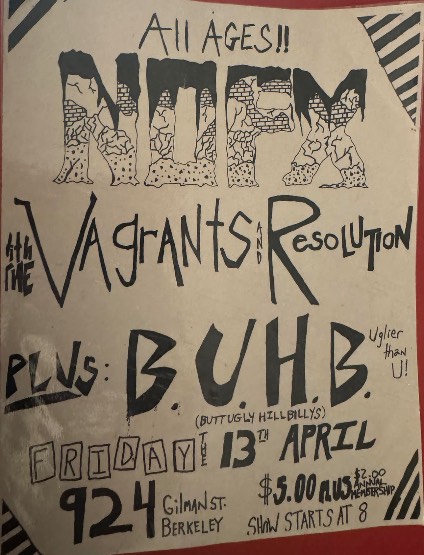 All AGES!!
NOFX
with THE VAgrANtS AND ResoluTION
PLUS: B.U.H.B. Uglier than U!
(BUTTUGLY HILLBILLYS)
FRIDAY THE 13TH APRIL
924 Gilman St. BERKELEY
$5.00 PLUS $2.00 ANNUAL MEMBERSHIP
SHOW STARTS AT 8